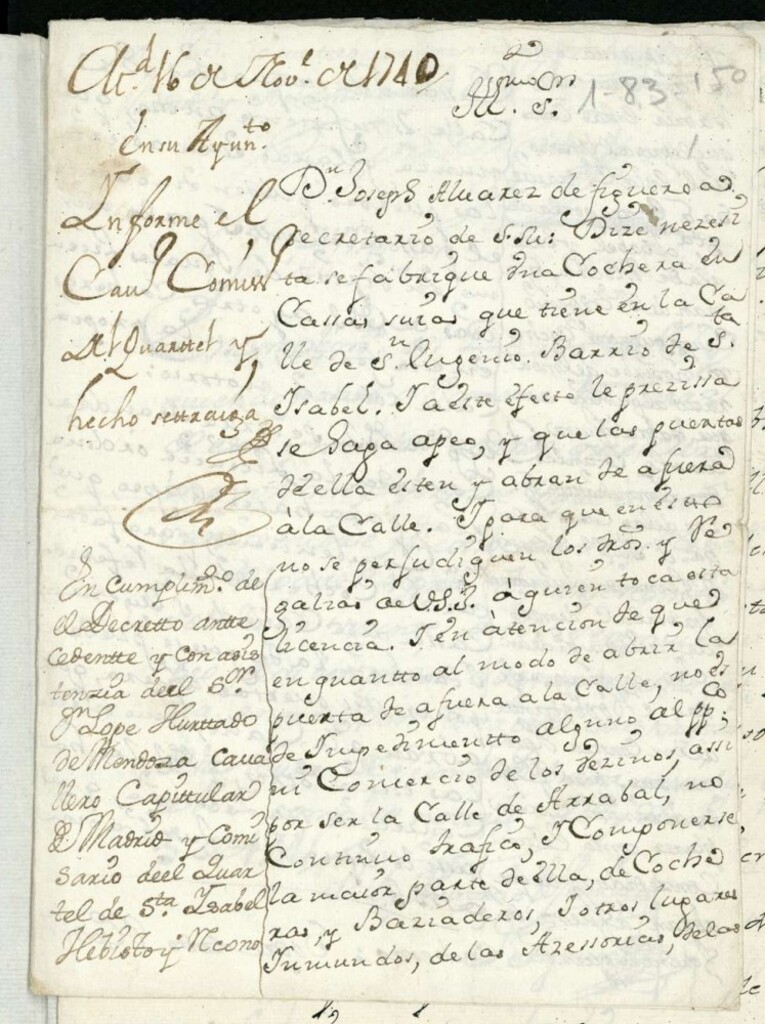 Md. 16 de Nov.e de 1740
En su Ayunt.to
Informe el
Cav.o Comiss.o
del Quarttel y
hecho settraiga
Ill.mo S.
1-83-150
D.n Joseph Alvarez de figueroa
Secretario de S.M: Dize nezesi
ta se fabrique una Cochera en
Cassas suias que tiene en la Ca
lle de S.n Eugenio. Barrio de S.ta
Isabel. I a este efecto le prezissa
se haga apeo, y que las puertas
de ella esten y abran de afuera
à la Calle. I para que en esto
no se perjudiquen los dros. y Re
galias de V.S.I. à quien toca esta
licencia. I en àtencion de que
en quantto al modo de abrir la
puerta de afuera a la Calle, no es
de Impedimento alguno al pp.co
ni Comercio de los Vezinos, assi
por ser la Calle de Arrabal, no
Continuo trafico, I Componerse
la maior parte de ella, de Coche
ras, y Bariaderos, I otros lugares
Inmundos, de las Azessorias, de las
En cumplim.to de
el Decretto antte
cedentte y con asis
tenzia deel S.or
D.n Lope Hurttado
de Mendoza Cava
llero Capittular
de Madrid y Comi
sario deel Quar
tel de S.ta Ysabel
He bisto y Recono